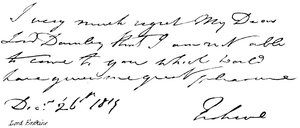 I very much regret My Dear
Lord Darnley that I am not able
to come to you which would
have given me great pleasure
Decr. 26th 1819
Lord Erskine